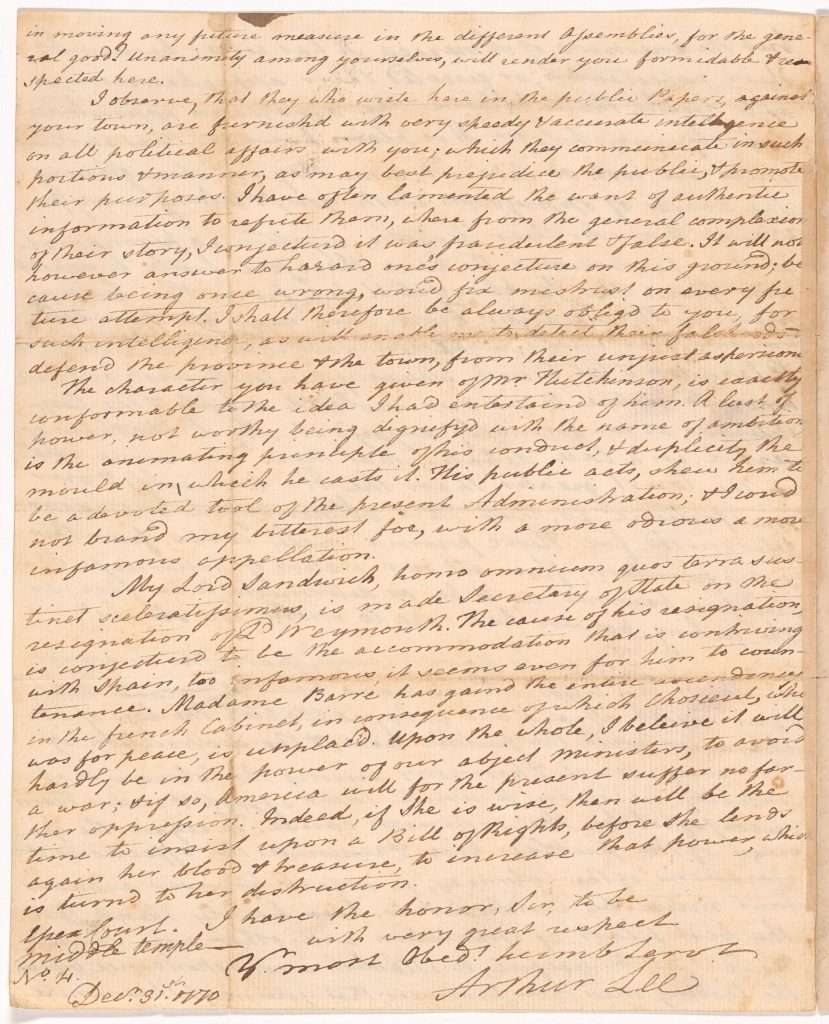 in moving any future measure in the different Assemblies, for the gene-
ral good? Unanimity among yourselves, will render you formidable & re-
spected here.
I observe, that they who write here in the public Papers, against
your town, are furnishd with very speedy & accurate intelligence
on all political affairs with you; which they communicate in such
portions & manner, as may best prejudice the public, & promote
their purposes. I have often lamented the want of authentic
information to refute them, where from the general complexion
of their story, I conjecturd it was fraudulent & false. It will not
however answer to hazard one's conjecture on this ground; be
cause being once wrong, woud fix mistrust on every fu
ture attempt. I shall therefore be always obligd to you, for
such intelligence, as will enable me to detect their falshoods
defend the province & the town, from their unjust aspersions
The character you have given of Mr Hutchinson, is exactly
conformable to the idea I had entertaind of him. A lust of
power, not worthy being dignifyd with the name of ambition
is the animating principle of his conduct, & duplicity the
mould in which he casts it. His public acts, shew him to
be a devoted tool of the present Administration; & I coud
not brand my bitterest foe, with a more odious a more
infamous appellation.
My Lord Sandwich, homo omnium quos terra sus-
tinet sceleratissimus, is made Secretary of State on the
resignation of Ld Weymouth. The cause of his resignation,
is conjecturd to be the accommodation that is contriving
with Spain, too infamous, it seems even for him to coun-
tenance. Madame Barré has gaind the entire ascendency
in the french Cabinet, in consequence of which Choseul, who
was for peace, is unplac'd. Upon the whole, I beleive it will
hardly be in the power of our abject Ministers, to avoid
a war; & if so, America will for the present suffer no far-
ther oppression. Indeed, if She is wise, then will be the
time to insist upon a Bill of Rights, before she lends
again her blood & treasure, to increase that power, which
is turnd to her destruction.
I have the honor, Sir, to be
with very great respect
Yr. most Obedt. humb Servt.
Arthur Lee
Essex Court.
Middle Temple
No. 4.
Decr. 31st. 1770